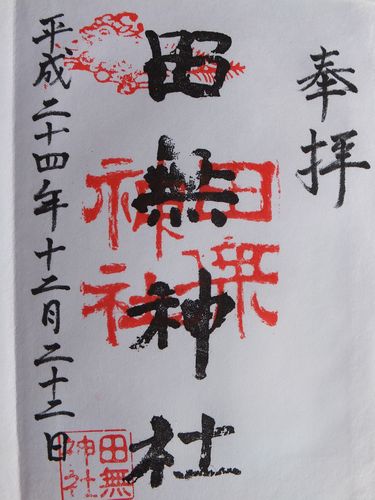 奉拝
田無神社
田無
神社
平成二十四年十二月二十二日
田無
神社